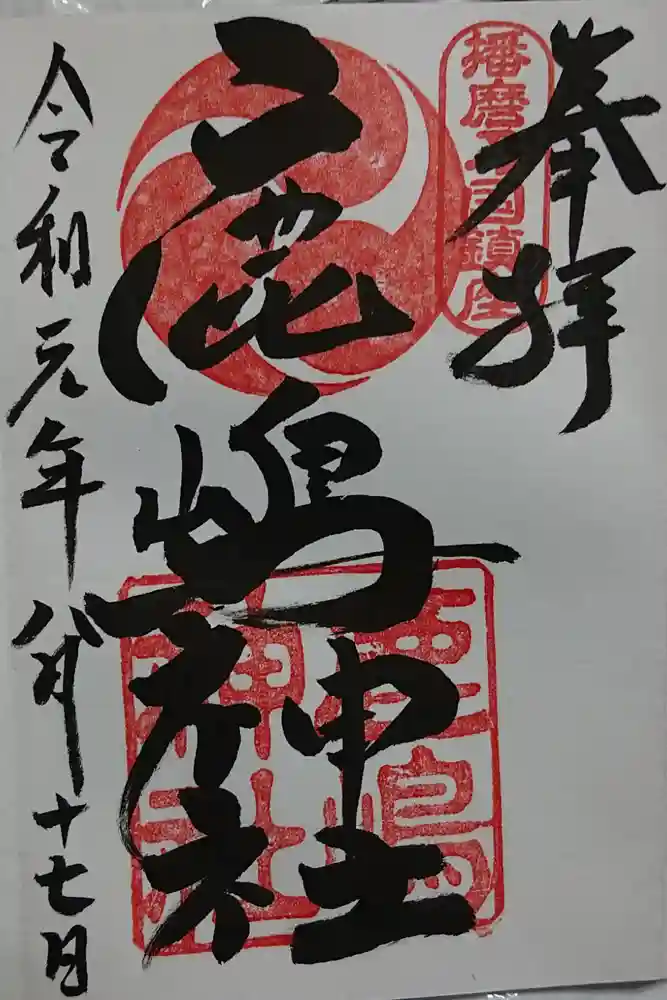 奉拝
播磨之国鎮座
鹿嶋神社
鹿嶋神社
令和元年八月十七日